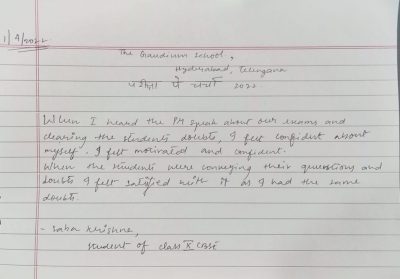 1/4/2022
The Gaudium School,
Hyderabad, Telangana
परीक्षा पे चर्चा 2022
When I heard the PM speak about our exams and
clearing the students doubts, I felt confident about
myself. I felt motivated and confident.
When the students were conveying their questions and
doubts I felt satisfied with it as I had the same
doubts.
- Saba Krishna,
student of class X CBSE